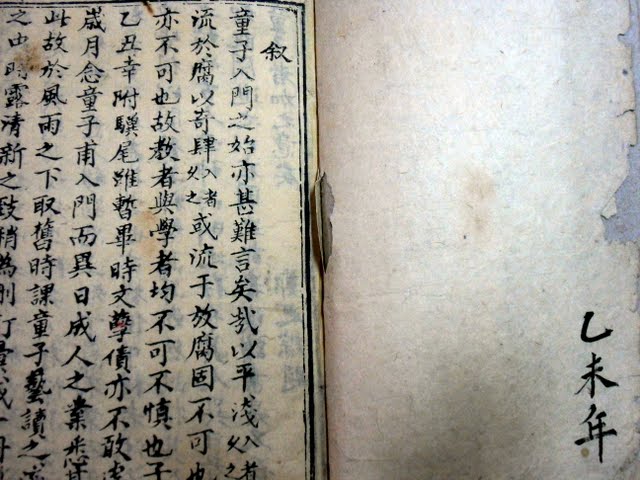 乙未年
叙
童子入門之始亦甚難言矣哉以平淺入者久之
流於腐以奇肆入者久之或流于放腐固不可也
亦不可也故教者與學者均不可不慎也子
乙丑幸附驥尾雖暫畢時文孽債亦不敢虛
歲月念童子甫入門而異日成人之業悉
此故於風雨之下取舊時課童子藝讀之
之由時露清新之致稍為刪訂彙成一冊